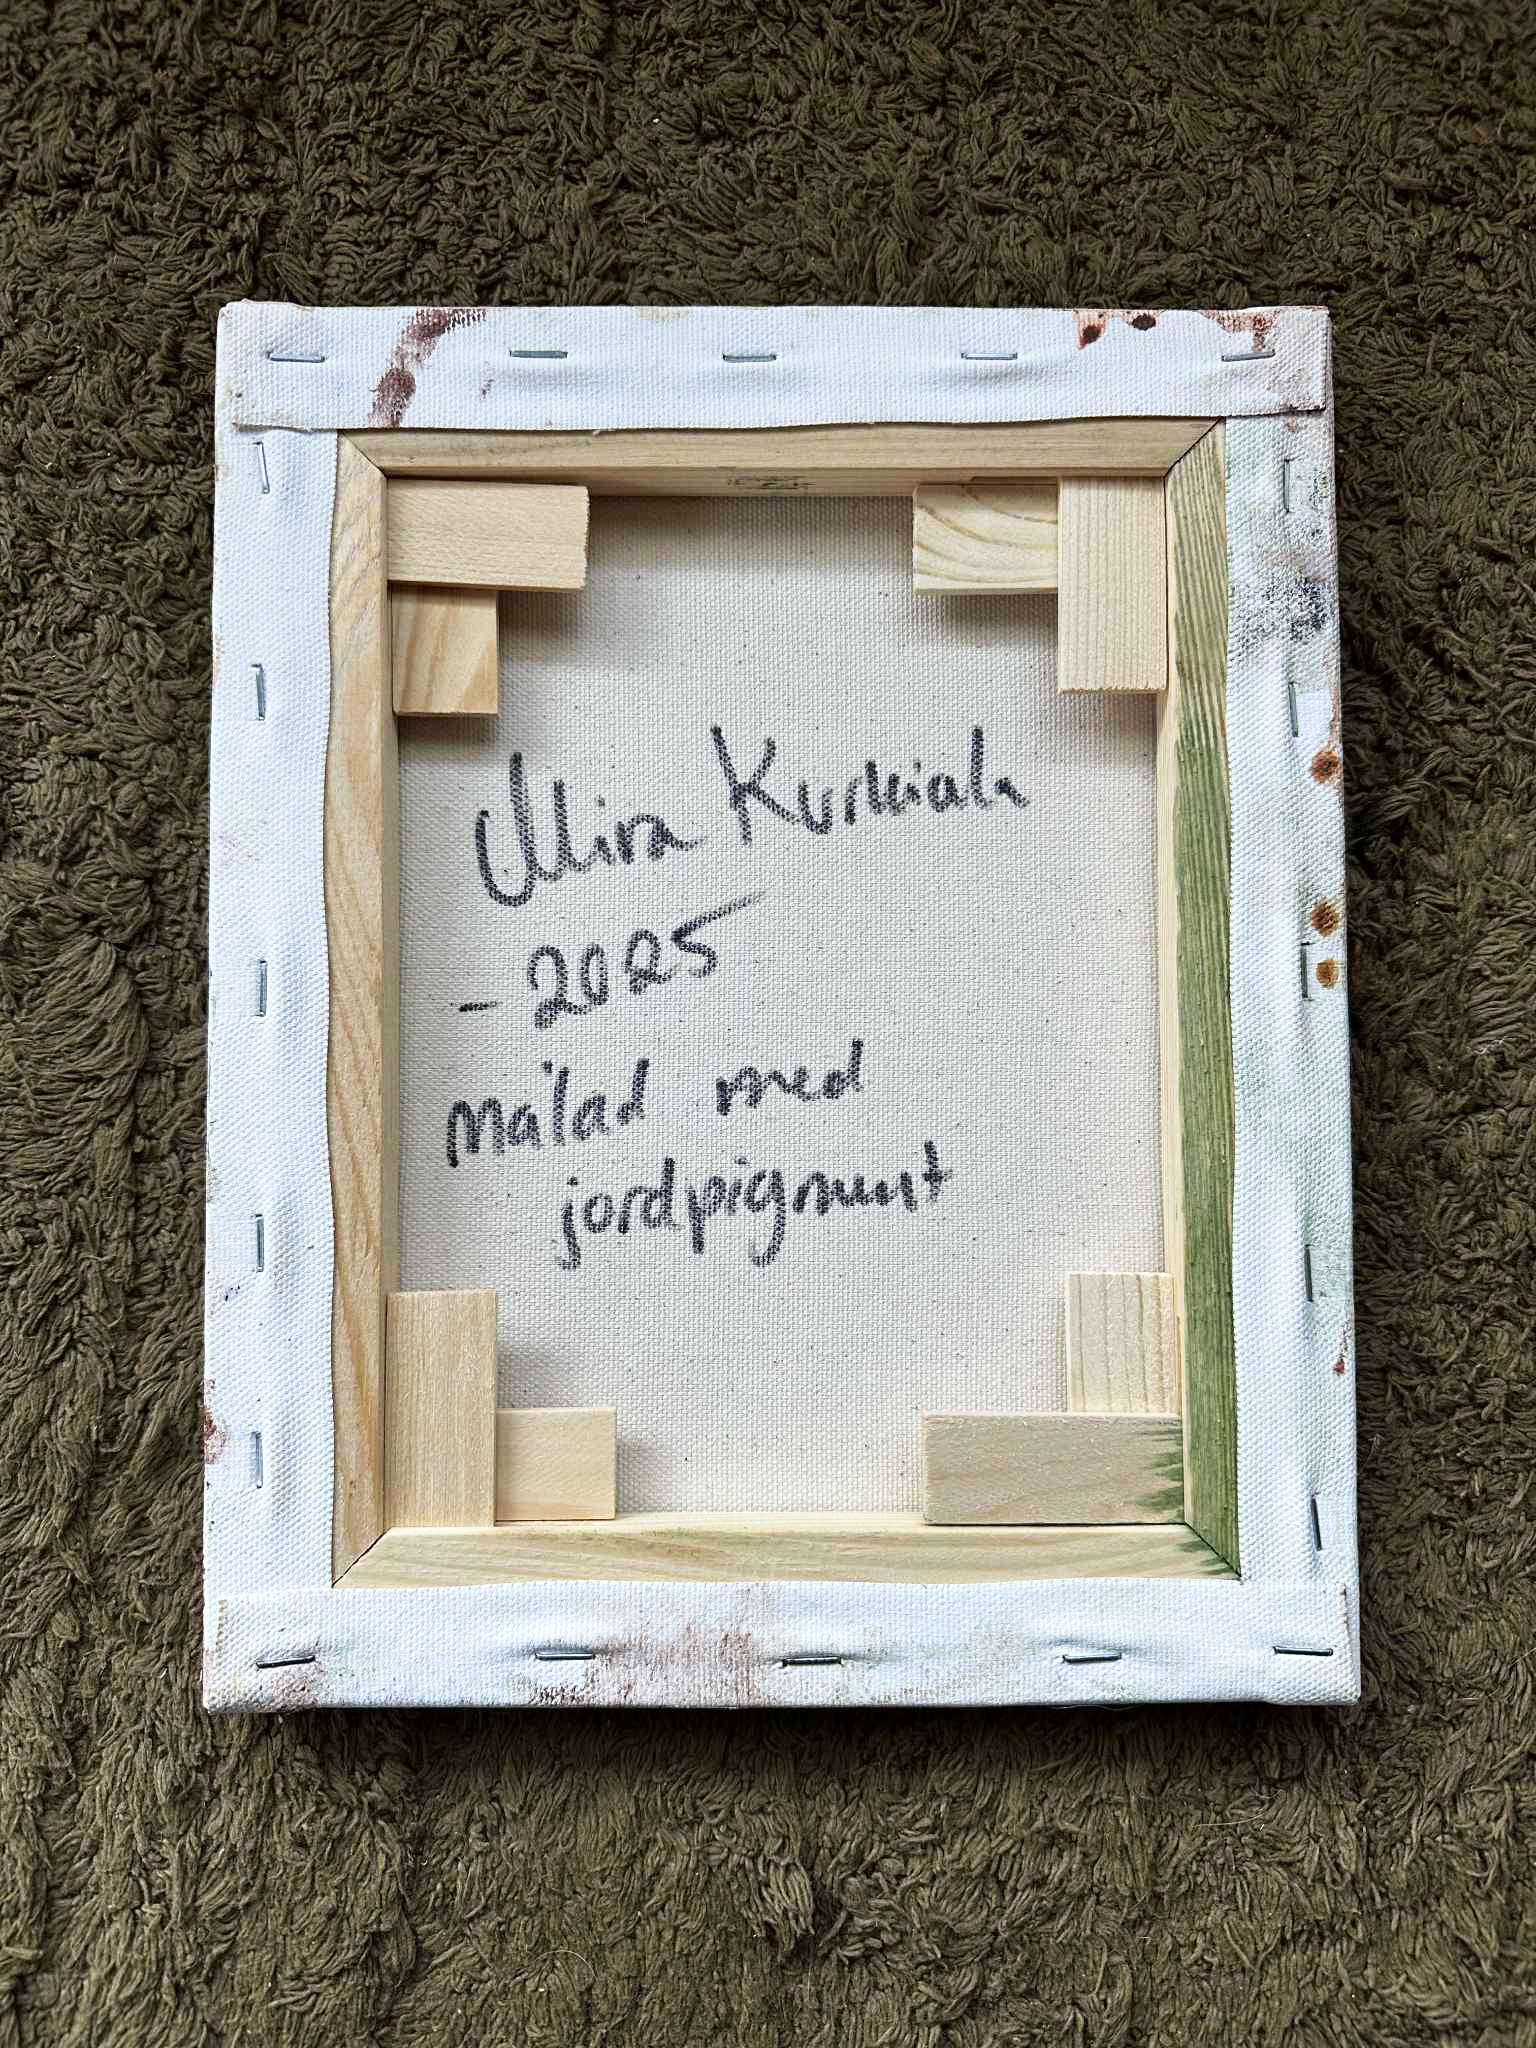 Mira Kurkiala
- 2025
målad med
jordpigment